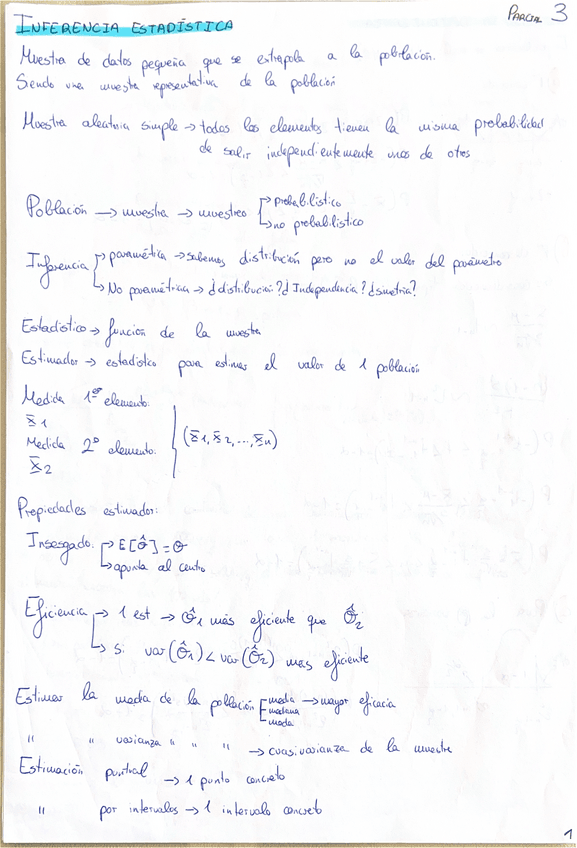 PARCIAL 3
INFERENCIA ESTADÍSTICA
Muestra de datos pequeña que se extrapola a la población.
Siendo una muestra representativa de la población
Muestra aleatoria simple → todos los elementos tienen la misma probabilidad
de salir independientemente unos de otros
Población → muestra → muestreo → probabilístico
→ no probabilístico
Inferencia → paramétrica → sabemos distribución pero no el valor del parámetro
→ No paramétrica → ¿distribución? ¿Independencia? ¿simetría?
Estadístico → función de la muestra
Estimador → estadístico para estimar el valor de 1 población
Medida 1er elemento:
X̄1
Medida 2º elemento:
X̄2
(X̄1, X̄2, ..., X̄n)
Propiedades estimador:
Insesgado: → E[θ̂] = θ
→ apunta al centro
Eficiencia → 1 est → θ̂1 más eficiente que θ̂2
→ Si var(θ̂1) < var(θ̂2) más eficiente
Estimar la media de la población media → mayor eficacia
mediana
moda
" " varianza " " " → cuasivarianza de la muestra
Estimación puntual → 1 punto concreto
" por intervalos → 1 intervalo concreto
1